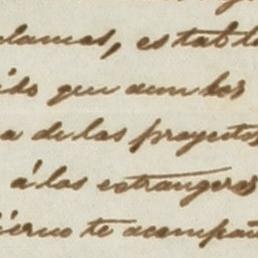 clamas, estable
ido que aun los
a de las proyectos
á los estrangeros
ierno te acompañ